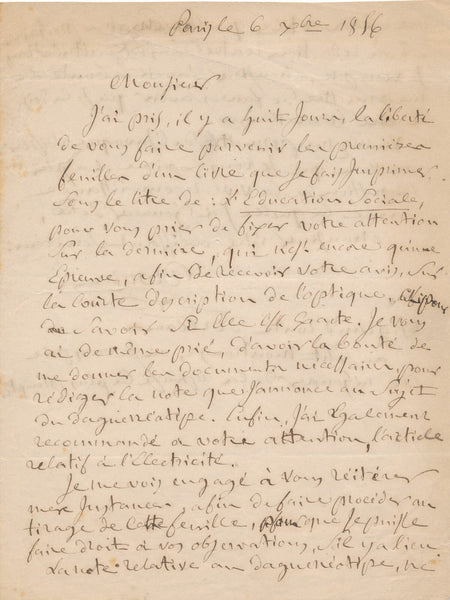 Paris le 6 Xbre 1856
Monsieur
J'ai pris, il y a huit jours, la liberté
de vous faire parvenir les premières
feuilles d'un livre que je fais imprimer
sous le titre de : L'Education Sociale,
pour vous prier de fixer votre attention
sur la dernière, qui n'est encore qu'une
Epreuve, afin de recevoir votre avis, sur
la courte description de l'optique,
savoir si elle est exacte. Je vous
ai de même prié, d'avoir la bonté de
me donner les documents nécessaires pour
rédiger la note que j'annonce au sujet
du daguereotipe. Enfin, j'ai également
recommandé à votre attention, l'article
relatif à l'Electricité.
Je me vois engagé à vous réitérer
mes instances, afin de faire procéder au
tirage de cette feuille, que je puisse
faire droit à vos observations, s'il y a lieu
La note relative au daguereotipe, ne